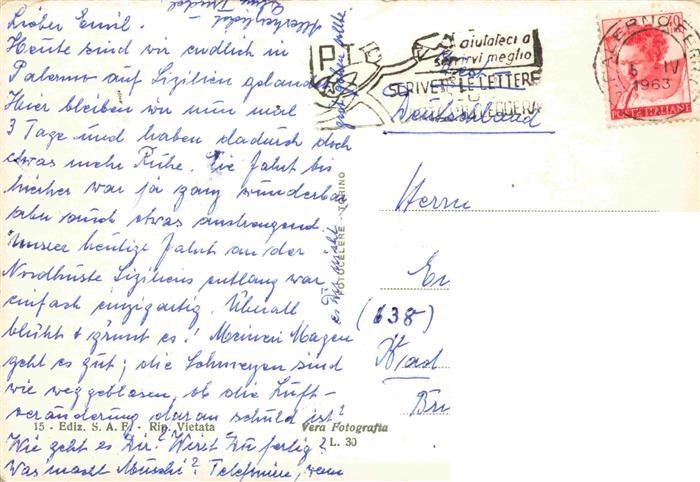 Lieber Emil.
Heute sind wir endlich in
Palermo auf Sizilien geland
Hier bleiben wir nun mal
3 Tage und haben dadurch doch
etwas mehr Ruhe. Die Fahrt bis
hierher war ja ganz wunderba
aber auch etwas anstrengend
Unsere heutige Fahrt an der
Nordküste Siziliens entlang war
einfach einzigartig. Überall
blüht + grünt es! Meinem Magen
geht es gut; die Schmerzen sind
wie weggeblasen, ob die Luft-
veränderung daran schuld ist?
Wie geht es Dir? Wirst Du fertig?
Was macht Muschi? Telefoniere, wenn
es Dir nicht
gut gehen sollte
Herzlichst
15 - Ediz. S. A. F. - Rip. Vietata
Vera Fotografia
L. 30
FOTOCELERE - TORINO
aiutateci a
servirvi meglio
SCRIVETE LE LETTERE
PALERMO
6 IV
1963
POSTE ITALIANE
Deutschland
Herrn
(638)
Bad